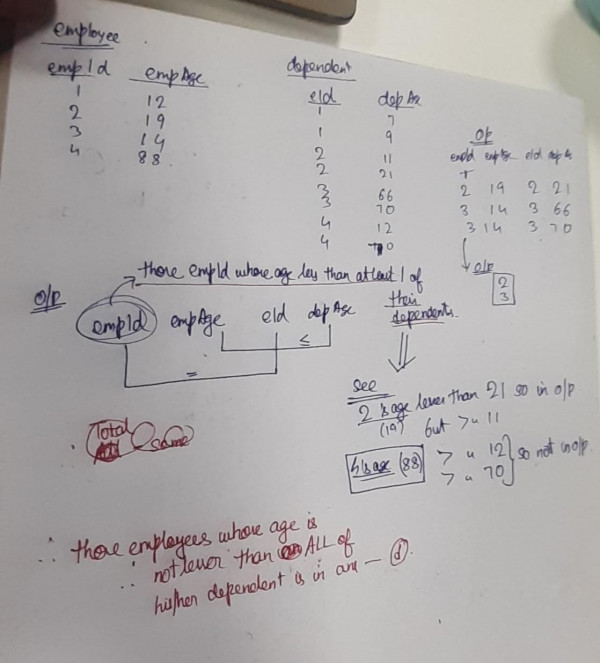 employee
empId empAge
1 12
2 19
3 14
4 88
dependent
eId depAge
1 7
1 9
2 11
2 21
3 66
3 70
4 12
4 70
O/P
empId empAge eId depAge
2 19 2 21
3 14 3 66
3 14 3 70
O/P
2
3
those empId whose age less than atleast 1 of
their
dependents.
O/P
empId empAge eId depAge
≤
=
see
2's age lesser than 21 so in o/p
(19) but > 11
4's age (88) > 12 so not in o/p
> 70
Total
same
∴ those employees whose age is
∴ not lesser than ALL of
his/her dependent is in ans — (d).